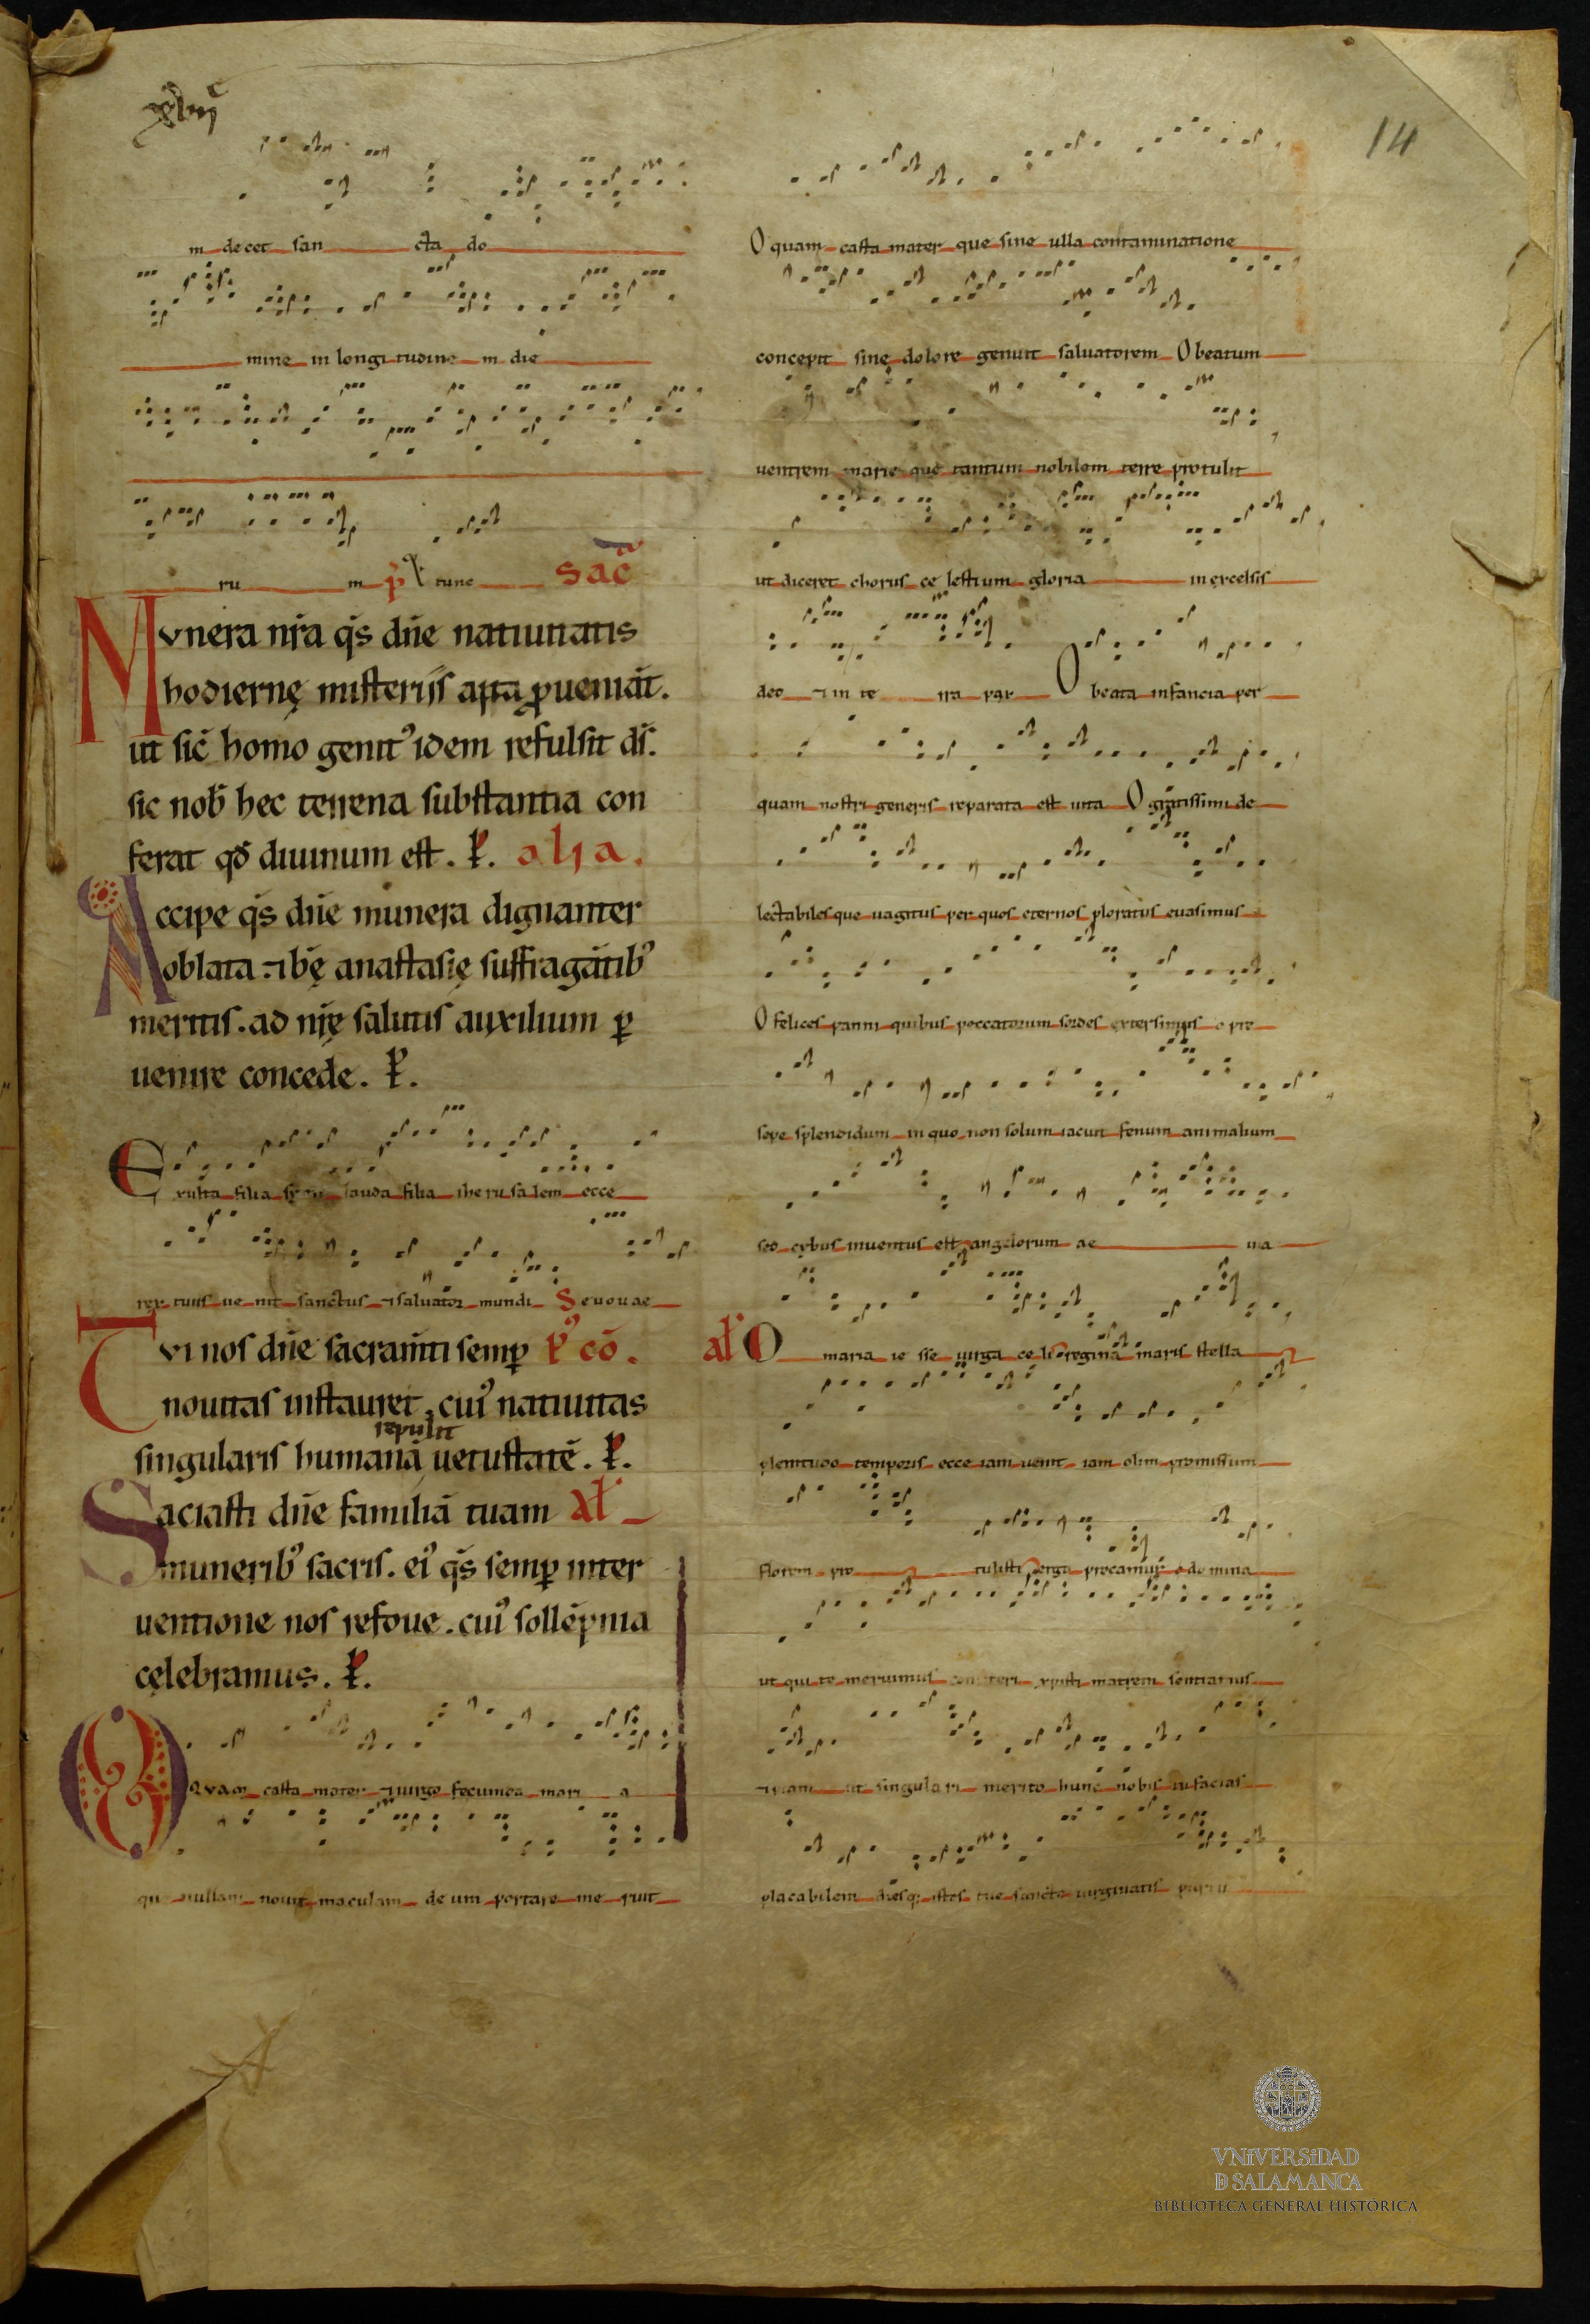 14
m decet san cta do
mine in longi tudine in die
ru m p̄ tunc Sac̄
Mvnera nr̄a qs̄ dn̄e natiuitatis
hodiernę misteriis apta ꝓueniāt.
ut sic̄ homo genitꝰ idem refulsit ds̄.
sic nob̄ hec terrena substantia con
ferat qd̄ diuinum est. P. alia.
Accipe qs̄ dn̄e munera dignanter
oblata ⁊ bę anastasię suffragātibꝰ
meritis. ad nr̄ę salutis auxilium ꝑ
uenire concede. P.
Exulta filia syon lauda filia iherusalem ecce
rex tuus ue nit sanctus ⁊ saluator mundi Seuouae
Tvi nos dn̄e sacram̄ti semꝑ Pꝰ cō.
nouitas instauret. cuiꝰ natiuitas
repulit
singularis humanā uetustatē. P.
Saciasti dn̄e familiā tuam Al̄
muneribꝰ sacris. eiꝰ qs̄ semꝑ inter
uentione nos refoue. cuiꝰ sollēpnia
cęlebramus. P.
O qvam casta mater ⁊ uirgo fecunda mari a
que nullam nouit maculam de um portare me ruit
O quam casta mater que sine ulla contaminatione
concepit sine dolore genuit saluatorem O beatum
uentrem marie que tantum nobilem terre protulit
ut diceret chorus ce lestium gloria in excelsis
deo ⁊ in te rra pax O beata infancia per
quam nostri generis reparata est uita O gratissimi de
lectabilesque uagitus per quos eternos ploratus euasimus
O felices panni quibus peccatorum sordes extersimus o pre
sepe splendidum in quo non solum iacuit fenum animalium
sed cybus inuentus est angelorum ae ua
Al̄ O maria ie sse uirga celi regina maris stella
plenitudo temporis ecce iam uenit iam olim promissum
florem pro tulisti ergo precamur o domina
ut qui te meruimus xpisti matrem sentiamus
⁊ piam ut singulari merito hunc nobis tu facias
placabilem diesq; istos tue sancte uirginitatis partu
VNiVERSiDAD
D SALAMANCA
BIBLIOTECA GENERAL HISTÓRICA